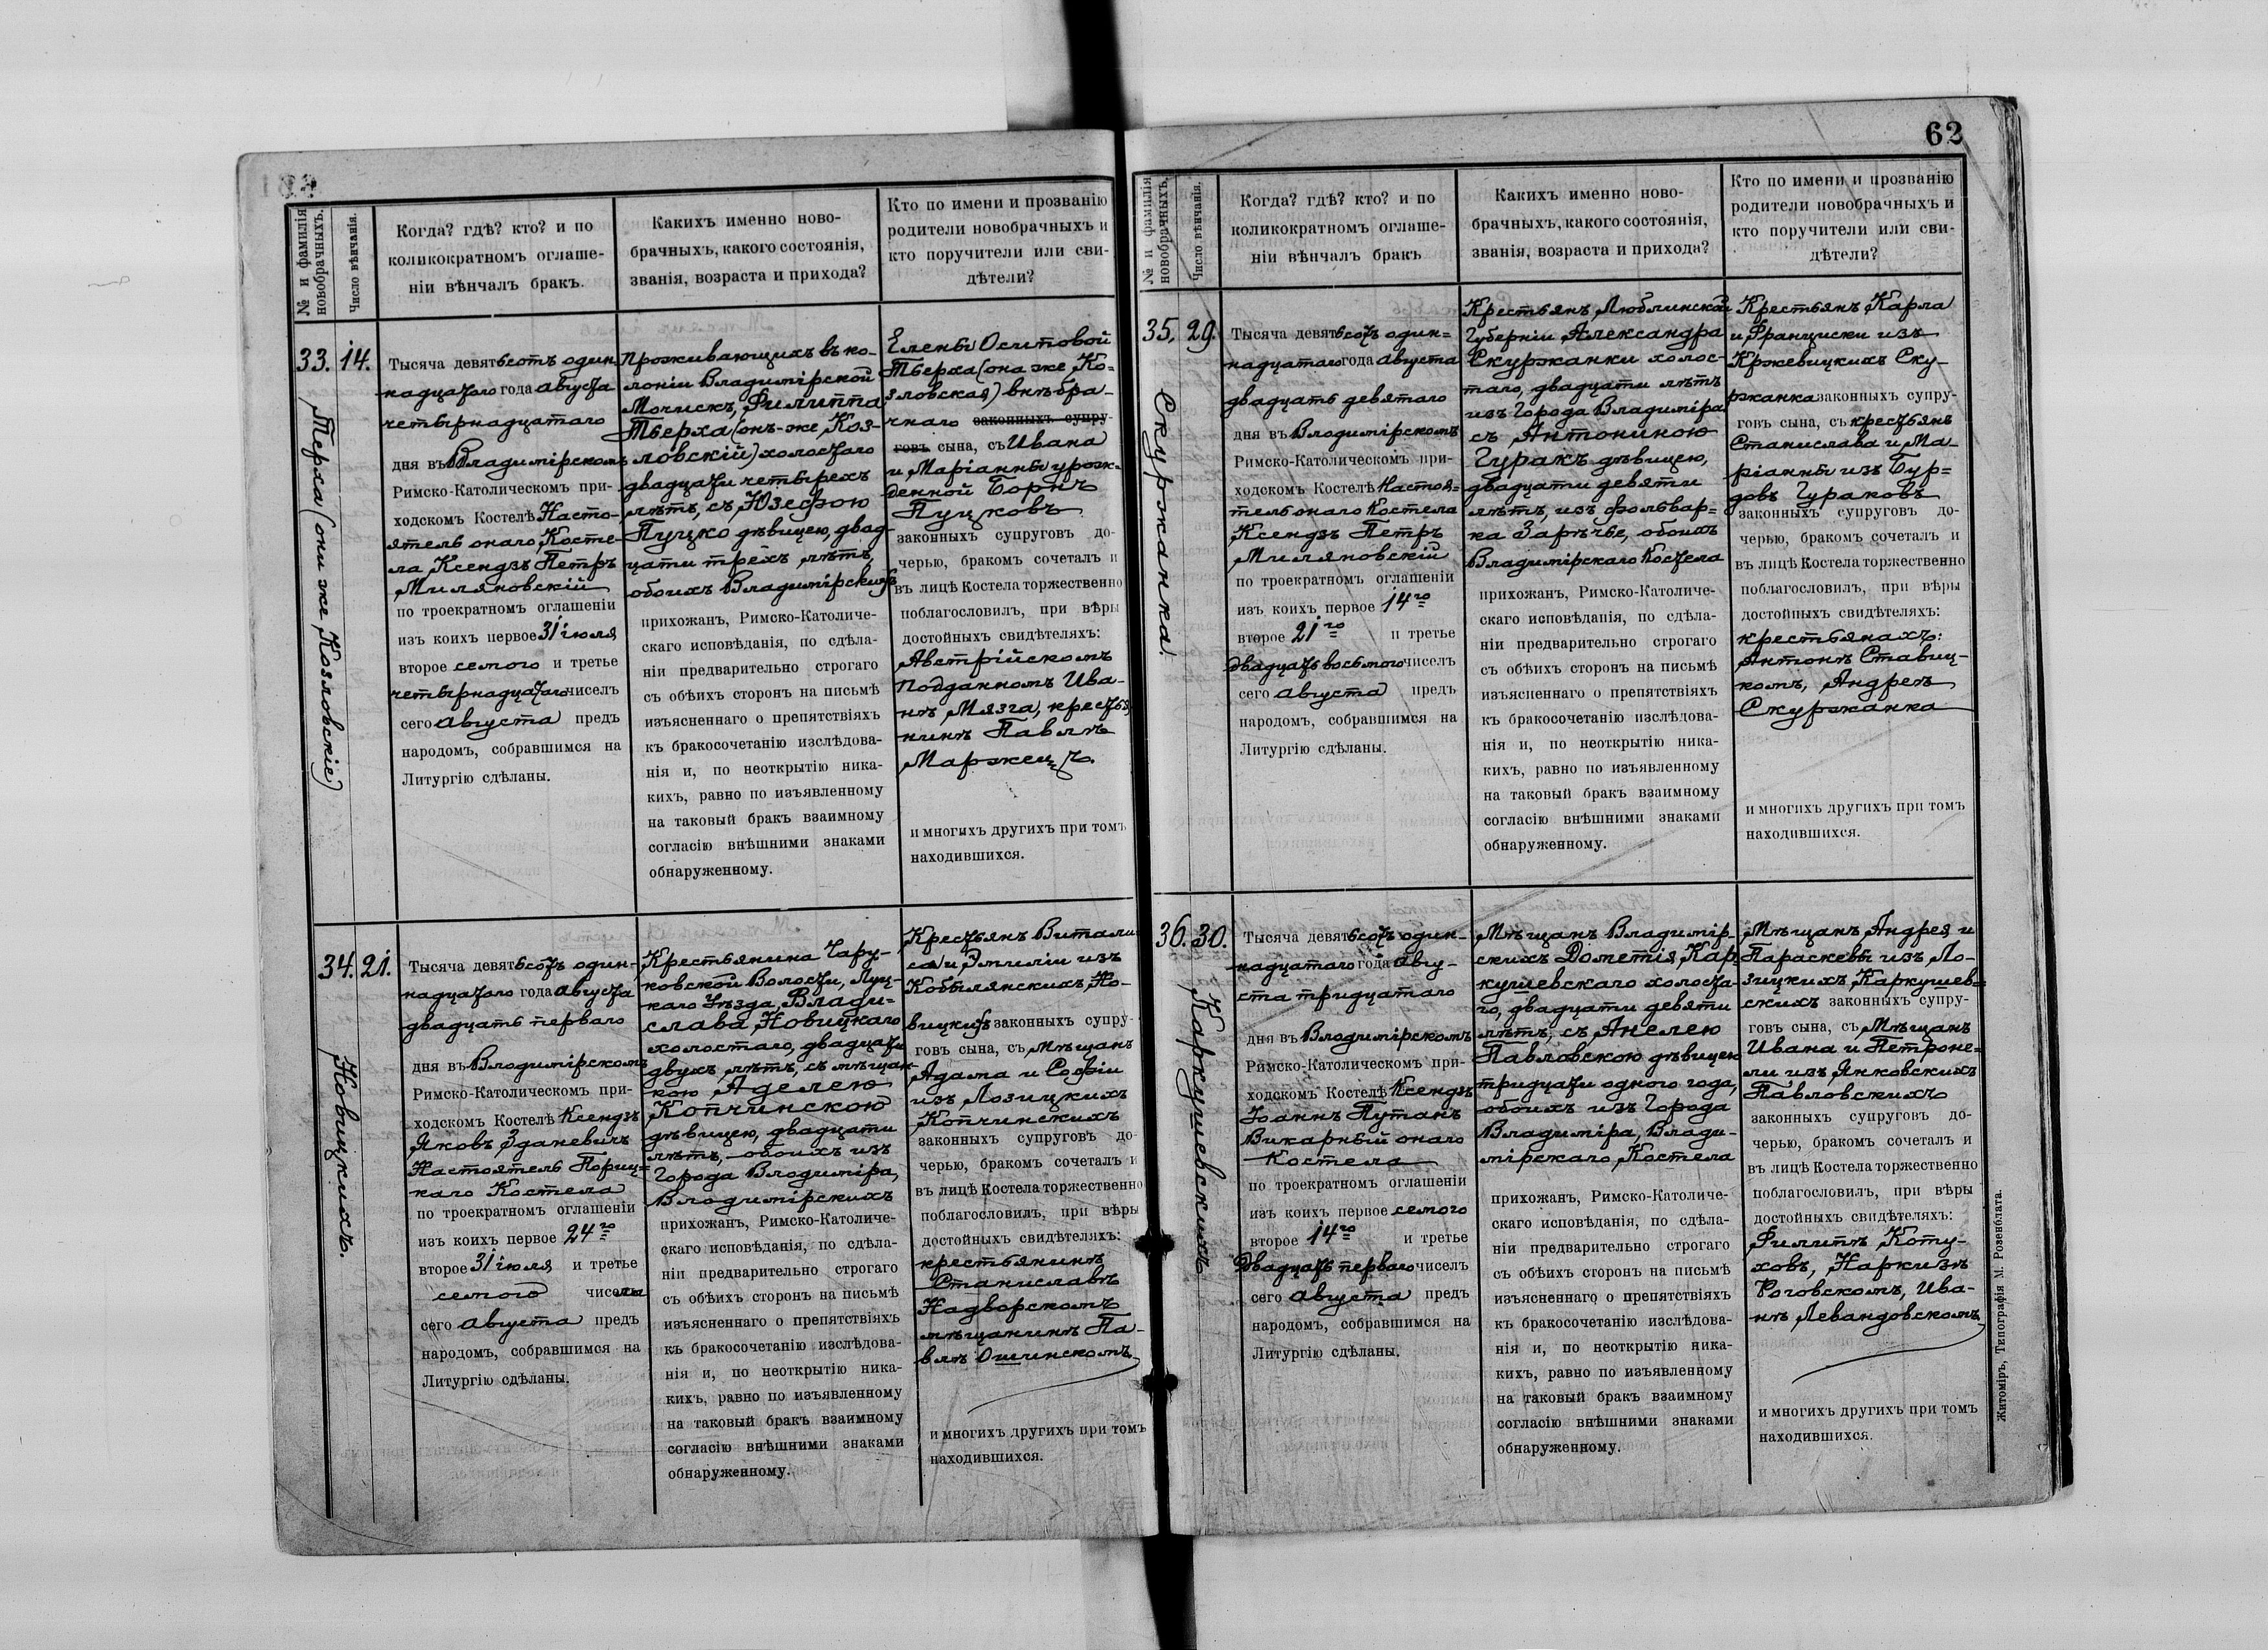 62
№ и фамилія новобрачныхъ.
Число вѣнчанія.
Когда? гдѣ? кто? и по
коликократномъ оглаше-
ніи вѣнчалъ бракъ.
Какихъ именно ново-
брачныхъ, какого состоянія,
званія, возраста и прихода?
Кто по имени и прозванію
родители новобрачныхъ и
кто поручители или сви-
дѣтели?
33.
Терха (они же Козловскіе)
14.
Тысяча девятьсотъ один
надцатого года Августа
четырнадцатаго
дня въ Владимірскомъ
Римско-Католическомъ при-
ходскомъ Костелѣ Насто-
ятель онаго Косте-
ла Ксендзъ Петръ
Миляновскій
по троекратномъ оглашеніи
изъ коихъ первое 31 іюля
второе семого и третье
четырнадцатаго чиселъ
сего Августа предъ
народомъ, собравшимся на
Литургію сдѣланы.
Проживающихъ въ ко-
лоніи Владимірской
Мочискъ, Филиппа
Тверха (онъ-же Коз-
ловскій) холостаго
двадцати четырехъ
лѣтъ, съ Юзефою
Пуцко дѣвицею, двад-
цати трехъ лѣтъ,
обоихъ Владимірскихъ
прихожанъ, Римско-Католиче-
скаго исповѣданія, по сдѣла-
ніи предварительно строгаго
съ обѣихъ сторонъ на письмѣ
изъясненнаго о препятствіяхъ
къ бракосочетанію изслѣдова-
нія и, по неоткрытію ника-
кихъ, равно по изъявленному
на таковый бракъ взаимному
согласію внѣшними знаками
обнаруженному.
Елены Осиповой
Тверха (она же Ко-
зловская) внѣбра-
чнаго законныхъ супру-
говъ сына, съ Ивана
и Маріанны урож-
денной Борнъ
Пуцковъ
законныхъ супруговъ до-
черью, бракомъ сочеталъ и
въ лицѣ Костела торжественно
поблагословилъ, при вѣры
достойныхъ свидѣтеляхъ:
Австрійскомъ
подданномъ Ива-
нѣ Мязга, крестья
нинѣ Павлѣ
Маржец
и многихъ другихъ при томъ
находившихся.
34.
Новицкихъ.
21.
Тысяча девятьсотъ один-
надцатого года Августа
двадцать перваго
дня въ Владимірскомъ
Римско-Католическомъ при-
ходскомъ Костелѣ Ксендзъ
Яковъ Зданевичъ
Настоятель Порыц-
каго Костела
по троекратномъ оглашеніи
изъ коихъ первое 24го
второе 31 іюля и третье
семого числа
сего Августа предъ
народомъ, собравшимся на
Литургію сдѣланы.
Крестьянина Чару-
ковской Волости, Луц-
каго Уѣзда, Влади-
слава Новицкаго
холостаго, двадцати
двухъ лѣтъ, съ мѣщан-
кою Аделею
Копчинскою
дѣвицею, двадцати
лѣтъ, обоихъ изъ
Города Владиміра,
Владимірскихъ
прихожанъ, Римско-Католиче-
скаго исповѣданія, по сдѣла-
ніи предварительно строгаго
съ обѣихъ сторонъ на письмѣ
изъясненнаго о препятствіяхъ
къ бракосочетанію изслѣдова-
нія и, по неоткрытію ника-
кихъ, равно по изъявленному
на таковый бракъ взаимному
согласію внѣшними знаками
обнаруженному.
Крестьянъ Витали
са и Эмиліи изъ
Кобылянскихъ Но-
вицкихъ законныхъ супру-
говъ сына, съ Мѣщанъ
Адама и Софіи
изъ Лозицкихъ
Копчинскихъ
законныхъ супруговъ до-
черью, бракомъ сочеталъ и
въ лицѣ Костела торжественно
поблагословилъ, при вѣры
достойныхъ свидѣтеляхъ:
крестьянинѣ
Станиславѣ
Надворскомъ
мѣщанинѣ Па-
влѣ Ошинскомъ
и многихъ другихъ при томъ
находившихся.
№ и фамилія новобрачныхъ.
Число вѣнчанія.
Когда? гдѣ? кто? и по
коликократномъ оглаше-
ніи вѣнчалъ бракъ
Какихъ именно ново-
брачныхъ, какого состоянія,
званія, возраста и прихода?
Кто по имени и прозванію
родители новобрачныхъ и
кто поручители или сви-
дѣтели?
35.
Скуржанка.
29.
Тысяча девятьсотъ один=
надцатаго года Августа
двадцать девятаго
дня въ Владимірскомъ
Римско-Католическомъ при-
ходскомъ Костелѣ Настоя=
тель онаго Костела
Ксендзъ Петръ
Миляновскій
по троекратномъ оглашеніи
изъ коихъ первое 14го
второе 21го и третье
двадцать восьмого чиселъ
сего Августа предъ
народомъ, собравшимся на
Литургію сдѣланы.
Крестьянъ Люблинской
Губерніи Александра
Скуржанки холос-
таго, двадцати лѣтъ
изъ Города Владиміра
съ Антониною
Гуракъ дѣвицею,
двадцати девяти
лѣтъ, изъ фольвар=
ка Зарѣчье, обоихъ
Владимірскаго Костела
прихожанъ, Римско-Католиче-
скаго исповѣданія, по сдѣла-
ніи предварительно строгаго
съ обѣихъ сторонъ на письмѣ
изъясненнаго о препятствіяхъ
къ бракосочетанію изслѣдова-
нія и, по неоткрытію ника-
кихъ, равно по изъявленному
на таковый бракъ взаимному
согласію внѣшними знаками
обнаруженному.
Крестьянъ Карла
и Франциски изъ
Кржевицкихъ Ску-
ржанка законныхъ супру-
говъ сына, съ крестьянъ
Станислава и Ма-
ріанны изъ Бур=
довъ Гураковъ
законныхъ супруговъ до-
черью, бракомъ сочеталъ и
въ лицѣ Костела торжественно
поблагословилъ, при вѣры
достойныхъ свидѣтеляхъ:
крестьянахъ:
Антонѣ Ставиц-
комъ, Андреѣ
Скуржанка
и многихъ другихъ при томъ
находившихся.
36.
Каркушевскихъ
30.
Тысяча девятьсотъ один-
надцатаго года Авгу-
ста тридцатаго
дня въ Владимірскомъ
Римско-Католическомъ при-
ходскомъ Костелѣ Ксендзъ
Іоаннъ Путанъ
Викарный онаго
Костела
по троекратномъ оглашеніи
изъ коихъ первое семого
второе 14го и третье
двадцать перваго чиселъ
сего Августа предъ
народомъ, собравшимся на
Литургію сдѣланы.
Мѣщанъ Владимір-
скихъ Дометія Кар-
кушевскаго холоста-
го, двадцати девяти
лѣтъ, съ Анелею
Павловскою дѣвицею
тридцати одного года,
обоихъ изъ Города
Владиміра, Влади-
мірскаго Костела
прихожанъ, Римско-Католиче-
скаго исповѣданія, по сдѣла-
ніи предварительно строгаго
съ обѣихъ сторонъ на письмѣ
изъясненнаго о препятствіяхъ
къ бракосочетанію изслѣдова-
нія и, по неоткрытію ника-
кихъ, равно по изъявленному
на таковый бракъ взаимному
согласію внѣшними знаками
обнаруженному.
Мѣщанъ Андрея и
Параскевы изъ Ло-
зицкихъ Каркушев=
скихъ законныхъ супру-
говъ сына, съ Мѣщанъ
Ивана и Петроне-
ли изъ Янковскихъ
Павловскихъ
законныхъ супруговъ до-
черью, бракомъ сочеталъ и
въ лицѣ Костела торжественно
поблагословилъ, при вѣры
достойныхъ свидѣтеляхъ:
Филипѣ Коту-
ховъ, Наркизѣ
Роговскомъ, Ива-
нѣ Левандовскомъ
и многихъ другихъ при томъ
находившихся.
Житоміръ, Типографія М. Розенблата.